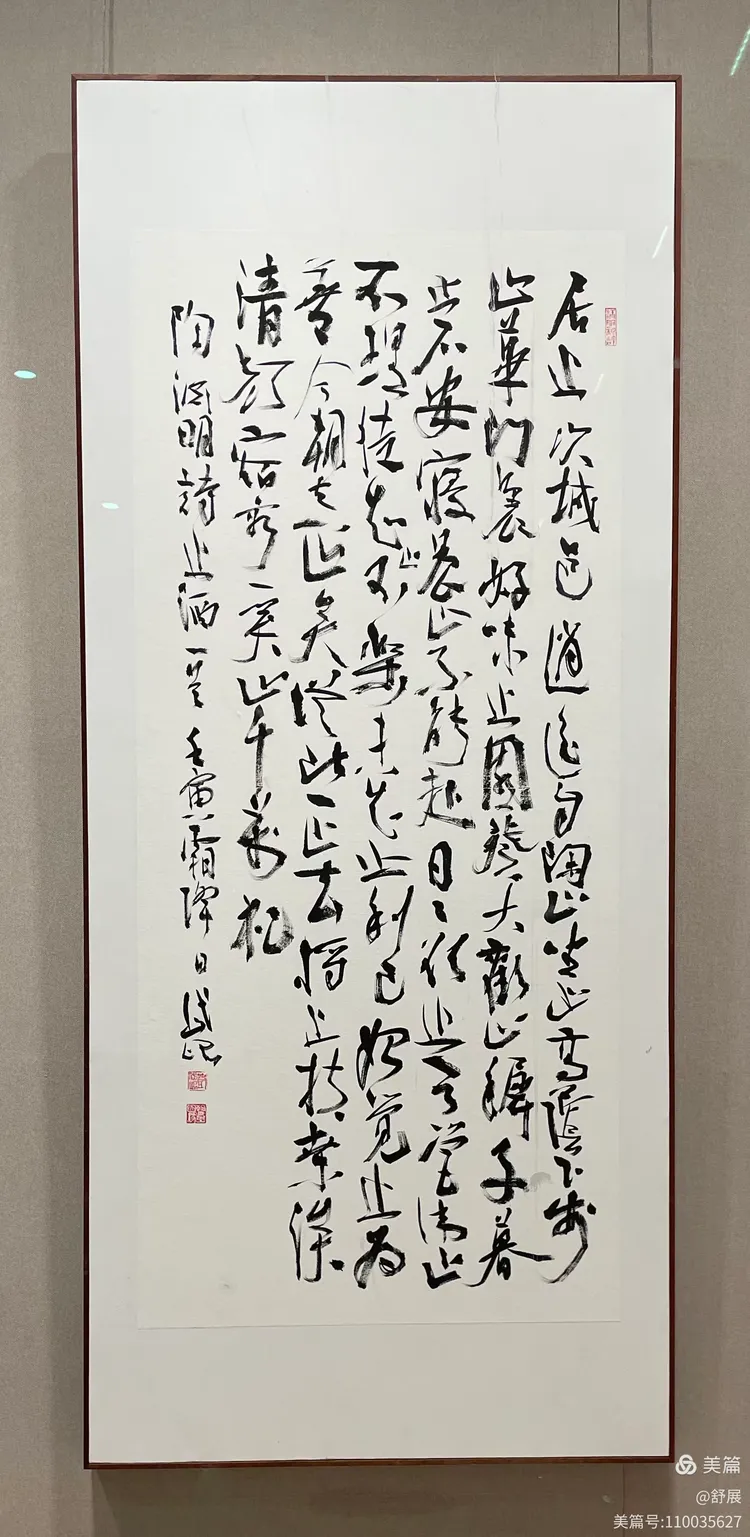 居止次城邑逍遥自閑止坐止高蔭下步
止蓽门裏好味止園葵大歡止稺子暮
止不安寝晨止不能起日日欲止之營衛止
不理徒知止不樂未知止利己始覺止為
善今朝真止矣從此一止去將止扶桑涘
清顔宿容奚止千萬祀
陶淵明詩止酒一首壬寅霜降日
美篇
@舒展
美篇号:110035627